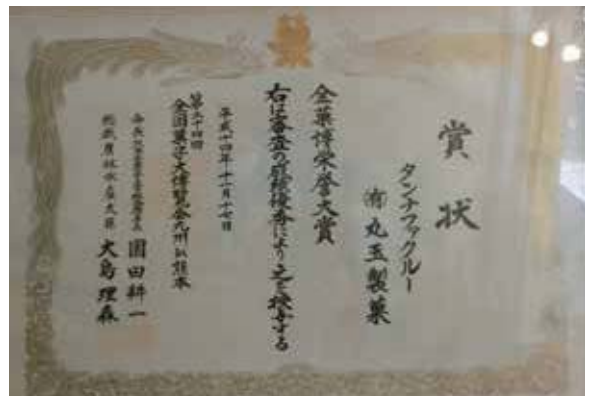 賞状
タンナファクルー
㈲丸玉製菓
全菓博栄誉大賞
右は審査の成績優秀により之を授与する
平成十四年十一月十七日
第二十四回
全国菓子大博覧会九州in熊本
会長
園田耕一
総裁農林水産大臣 大島理森